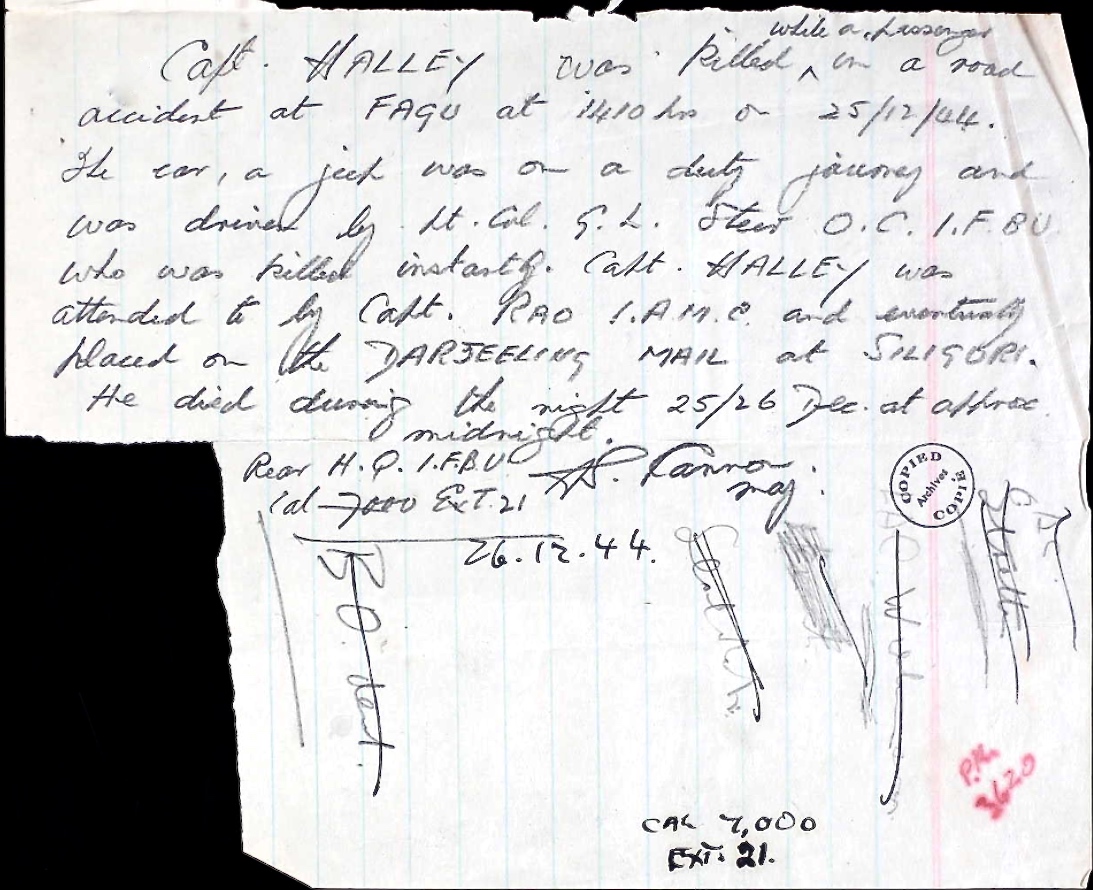 while a passenger
Capt. HALLEY was killed ^ in a road
accident at FAGU at 1410 hrs on 25/12/44.
The car, a jeep was on a duty journey and
was driven by Lt. Col. G.L. Steer O.C. I.F.B.U.
who was killed instantly. Capt. HALLEY was
attended to by Capt. RAO I.A.M.C. and eventually
placed on the DARJEELING MAIL at SILIGURI.
He died during the night 25/26 Dec. at approx.
midnight.
Rear H.Q. I.F.B.U
Cal 7000 EXT. 21
Maj.
26.12.44.
COPIED
Archives
COPIE
CAL 7,000
EXT. 21.
3620